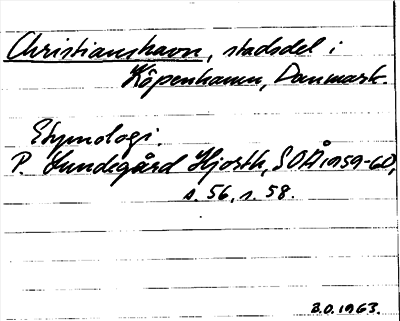 Christianshavn, stadsdel i
Köpenhamn, Danmark.
Etymologi.
P. Lundegård Hjorth, SOÅ 1959-60,
s. 56, s. 58.
B.O. 1963.